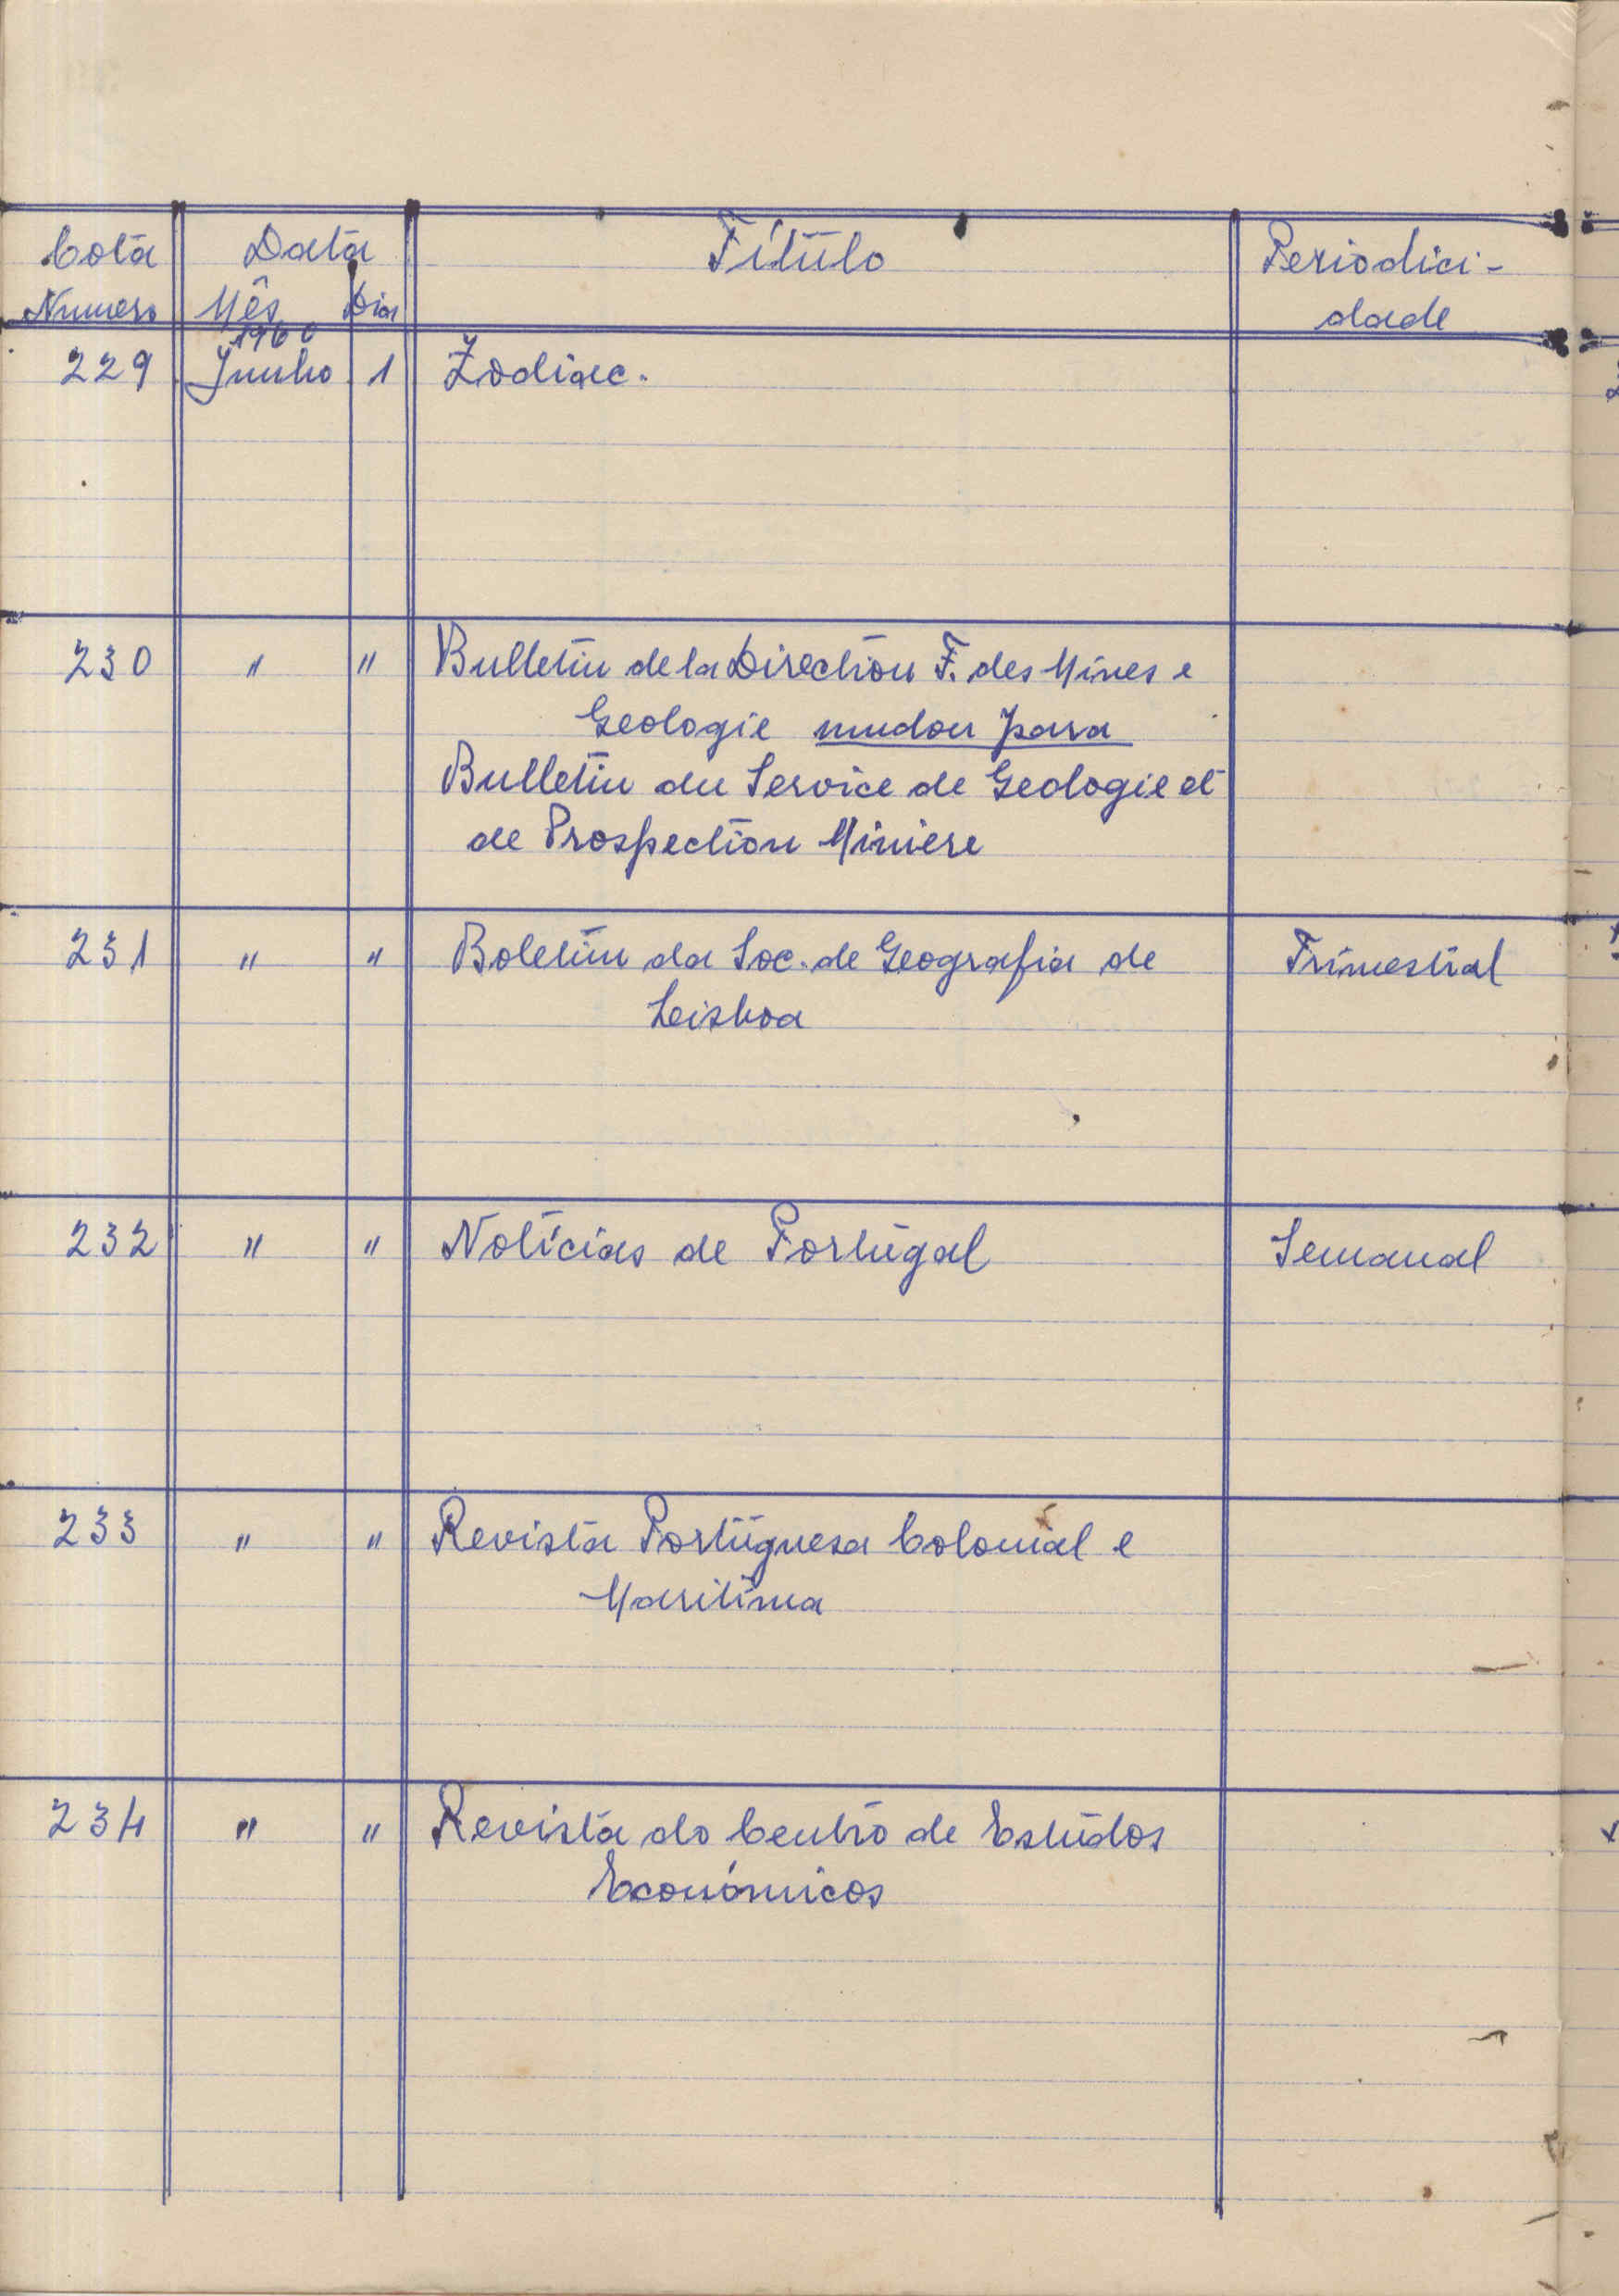 Cota Data Título Periodici-
Numero Mês Dia dade
1960
229 Junho 1 Zodiac.
230 " " Bulletin de la Direction F. des Mines e
Geologie mudou para
Bulletin du Service de Geologie et
de Prospection Miniere
231 " " Boletim da Soc. de Geografia de Trimestral
Leisboa
232 " " Notícias de Portugal Semanal
233 " " Revista Portuguesa Colonial e
Maritima
234 " " Revista do Centro de Estudos
Económicos